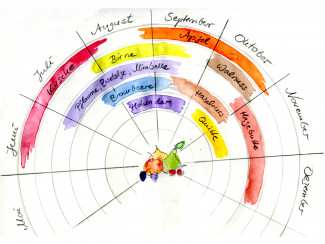 Mai
Juni
Juli
August
September
Oktober
November
Dezember
Kirsche
Birne
Apfel
Pflaume, Zwetschge, Mirabelle
Brombeere
Holunder
Walnuss
Haselnuss
Quitte
Hagebutte